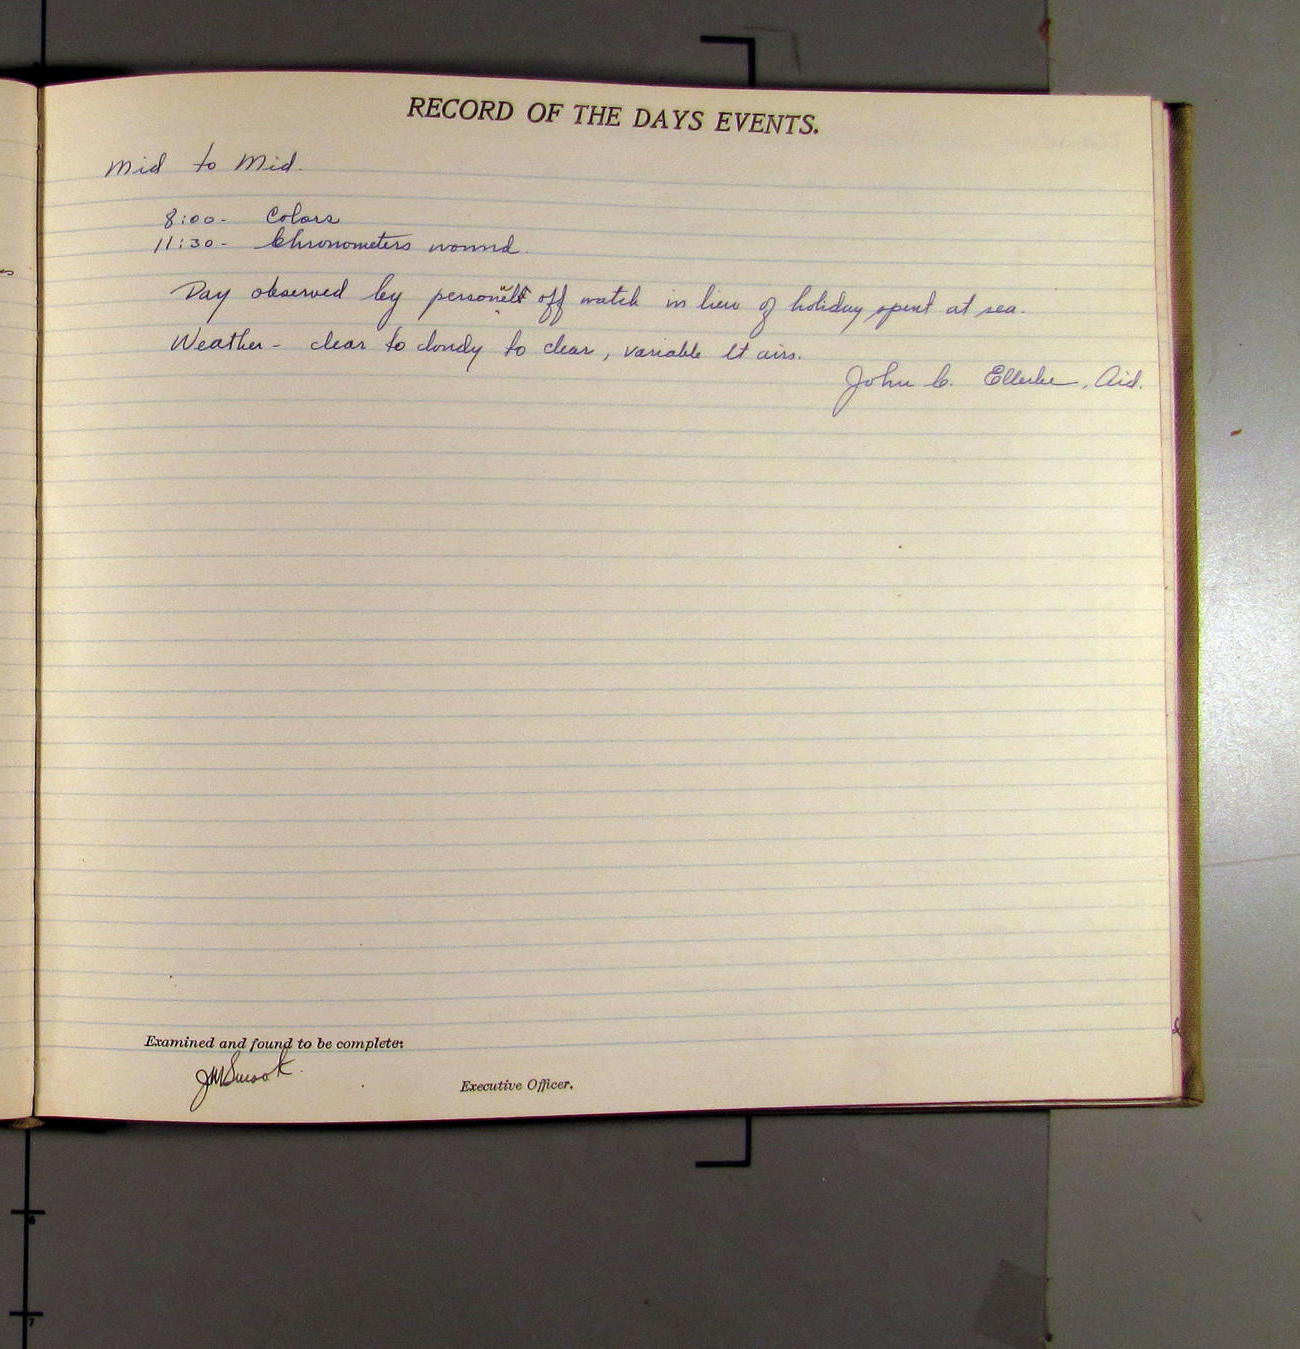 RECORD OF THE DAYS EVENTS.
Mid to Mid.
8:00- Colors
11:30- Chronometers wound.
Day observed by off watch in lieu of holiday spent at sea.
Weather - clear to cloudy to clear, variable lt airs.
John C. Ellerbe, Aid.
Examined and found to be complete:
Executive Officer.
6
7